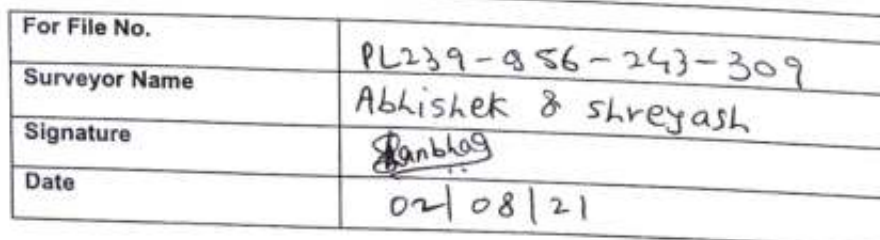 For File No. PL239-856-243-309
Surveyor Name Abhishek & shreyash
Signature
Date 02/08/21